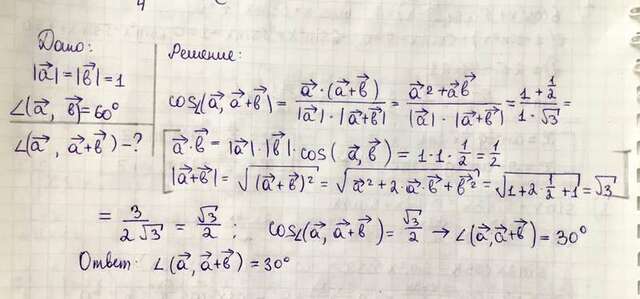 Дано:
|a⃗|=|b⃗|=1
∠(a⃗, b⃗)=60°
∠(a⃗, a⃗+b⃗)-?
Решение:
cos∠(a⃗, a⃗+b⃗) = a⃗·(a⃗+b⃗) / |a⃗|·|a⃗+b⃗| = a⃗²+a⃗b⃗ / |a⃗|·|a⃗+b⃗| = (1+1/2) / (1·√3) =
[a⃗·b⃗ = |a⃗|·|b⃗|·cos(a⃗, b⃗) = 1·1·1/2 = 1/2
|a⃗+b⃗| = √((a⃗+b⃗)²) = √(a⃗²+2·a⃗·b⃗+b⃗²) = √(1+2·1/2+1) = √3]
= 3/(2√3) = √3/2 ; cos∠(a⃗, a⃗+b⃗) = √3/2 → ∠(a⃗, a⃗+b⃗) = 30°
Ответ: ∠(a⃗, a⃗+b⃗) = 30°